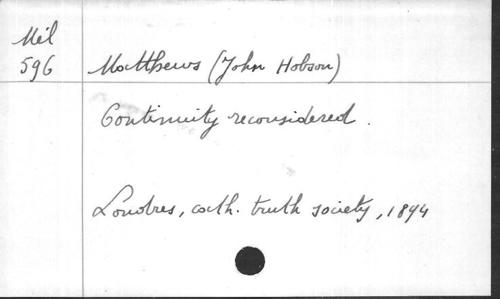 Mél
596
Matthews (John Hobson)
Continuity reconsidered.
Londres, cath. truth society, 1894